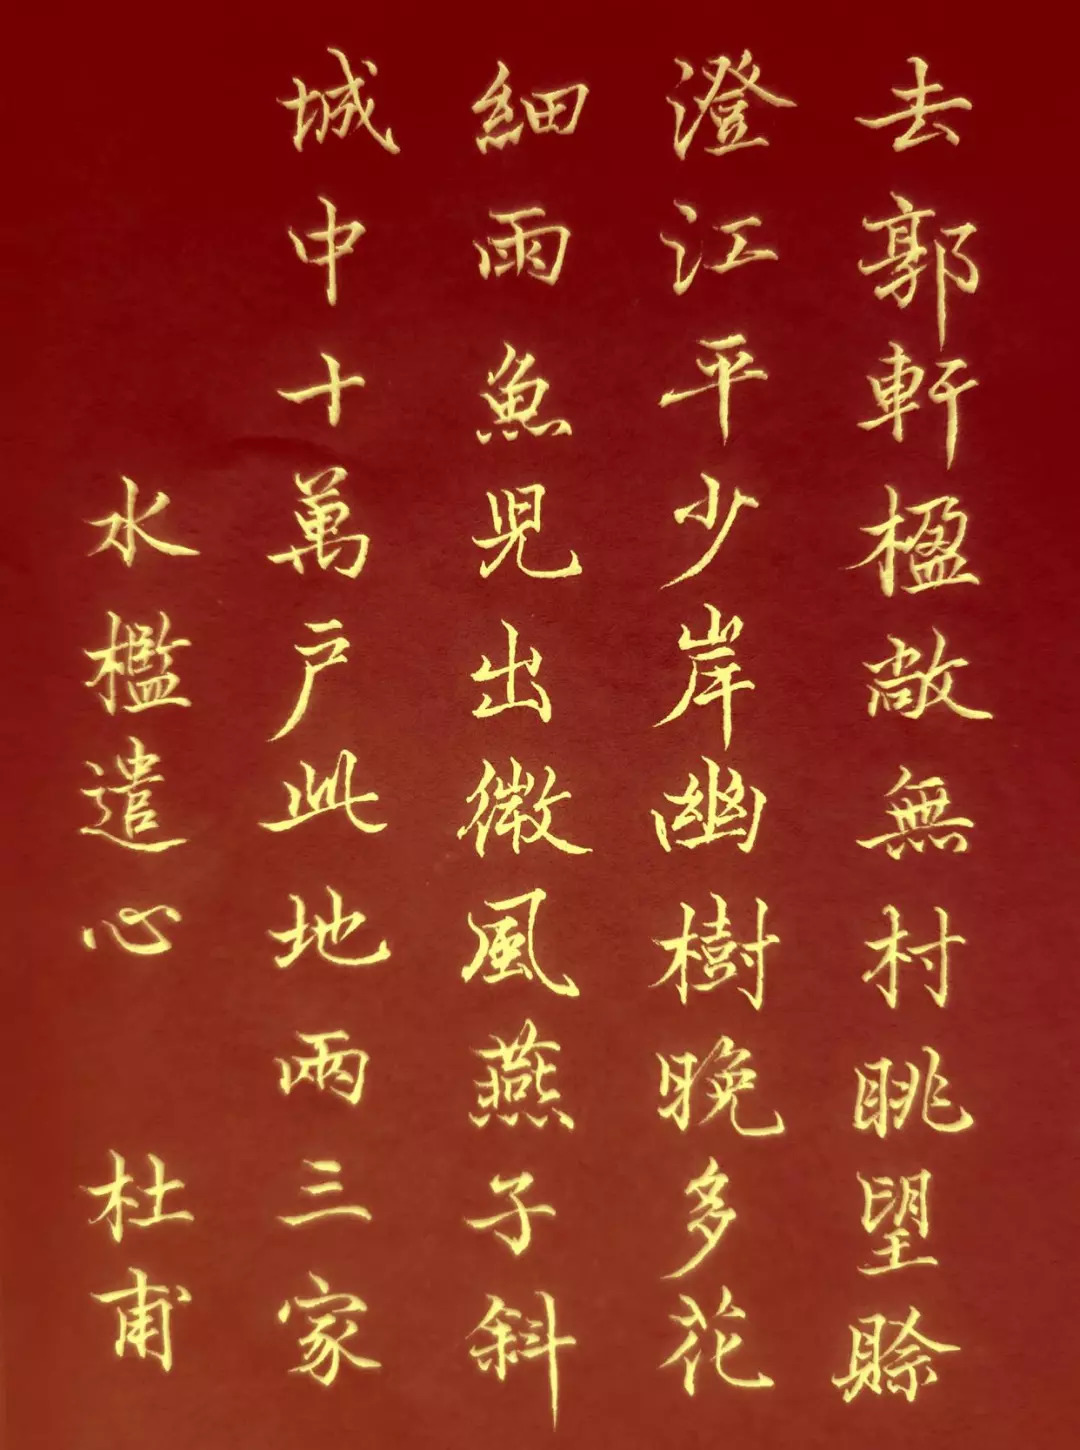 去郭軒楹敞無村眺望賒
澄江平少岸幽樹晚多花
細雨魚兒出微風燕子斜
城中十萬户此地兩三家
水檻遣心 杜甫